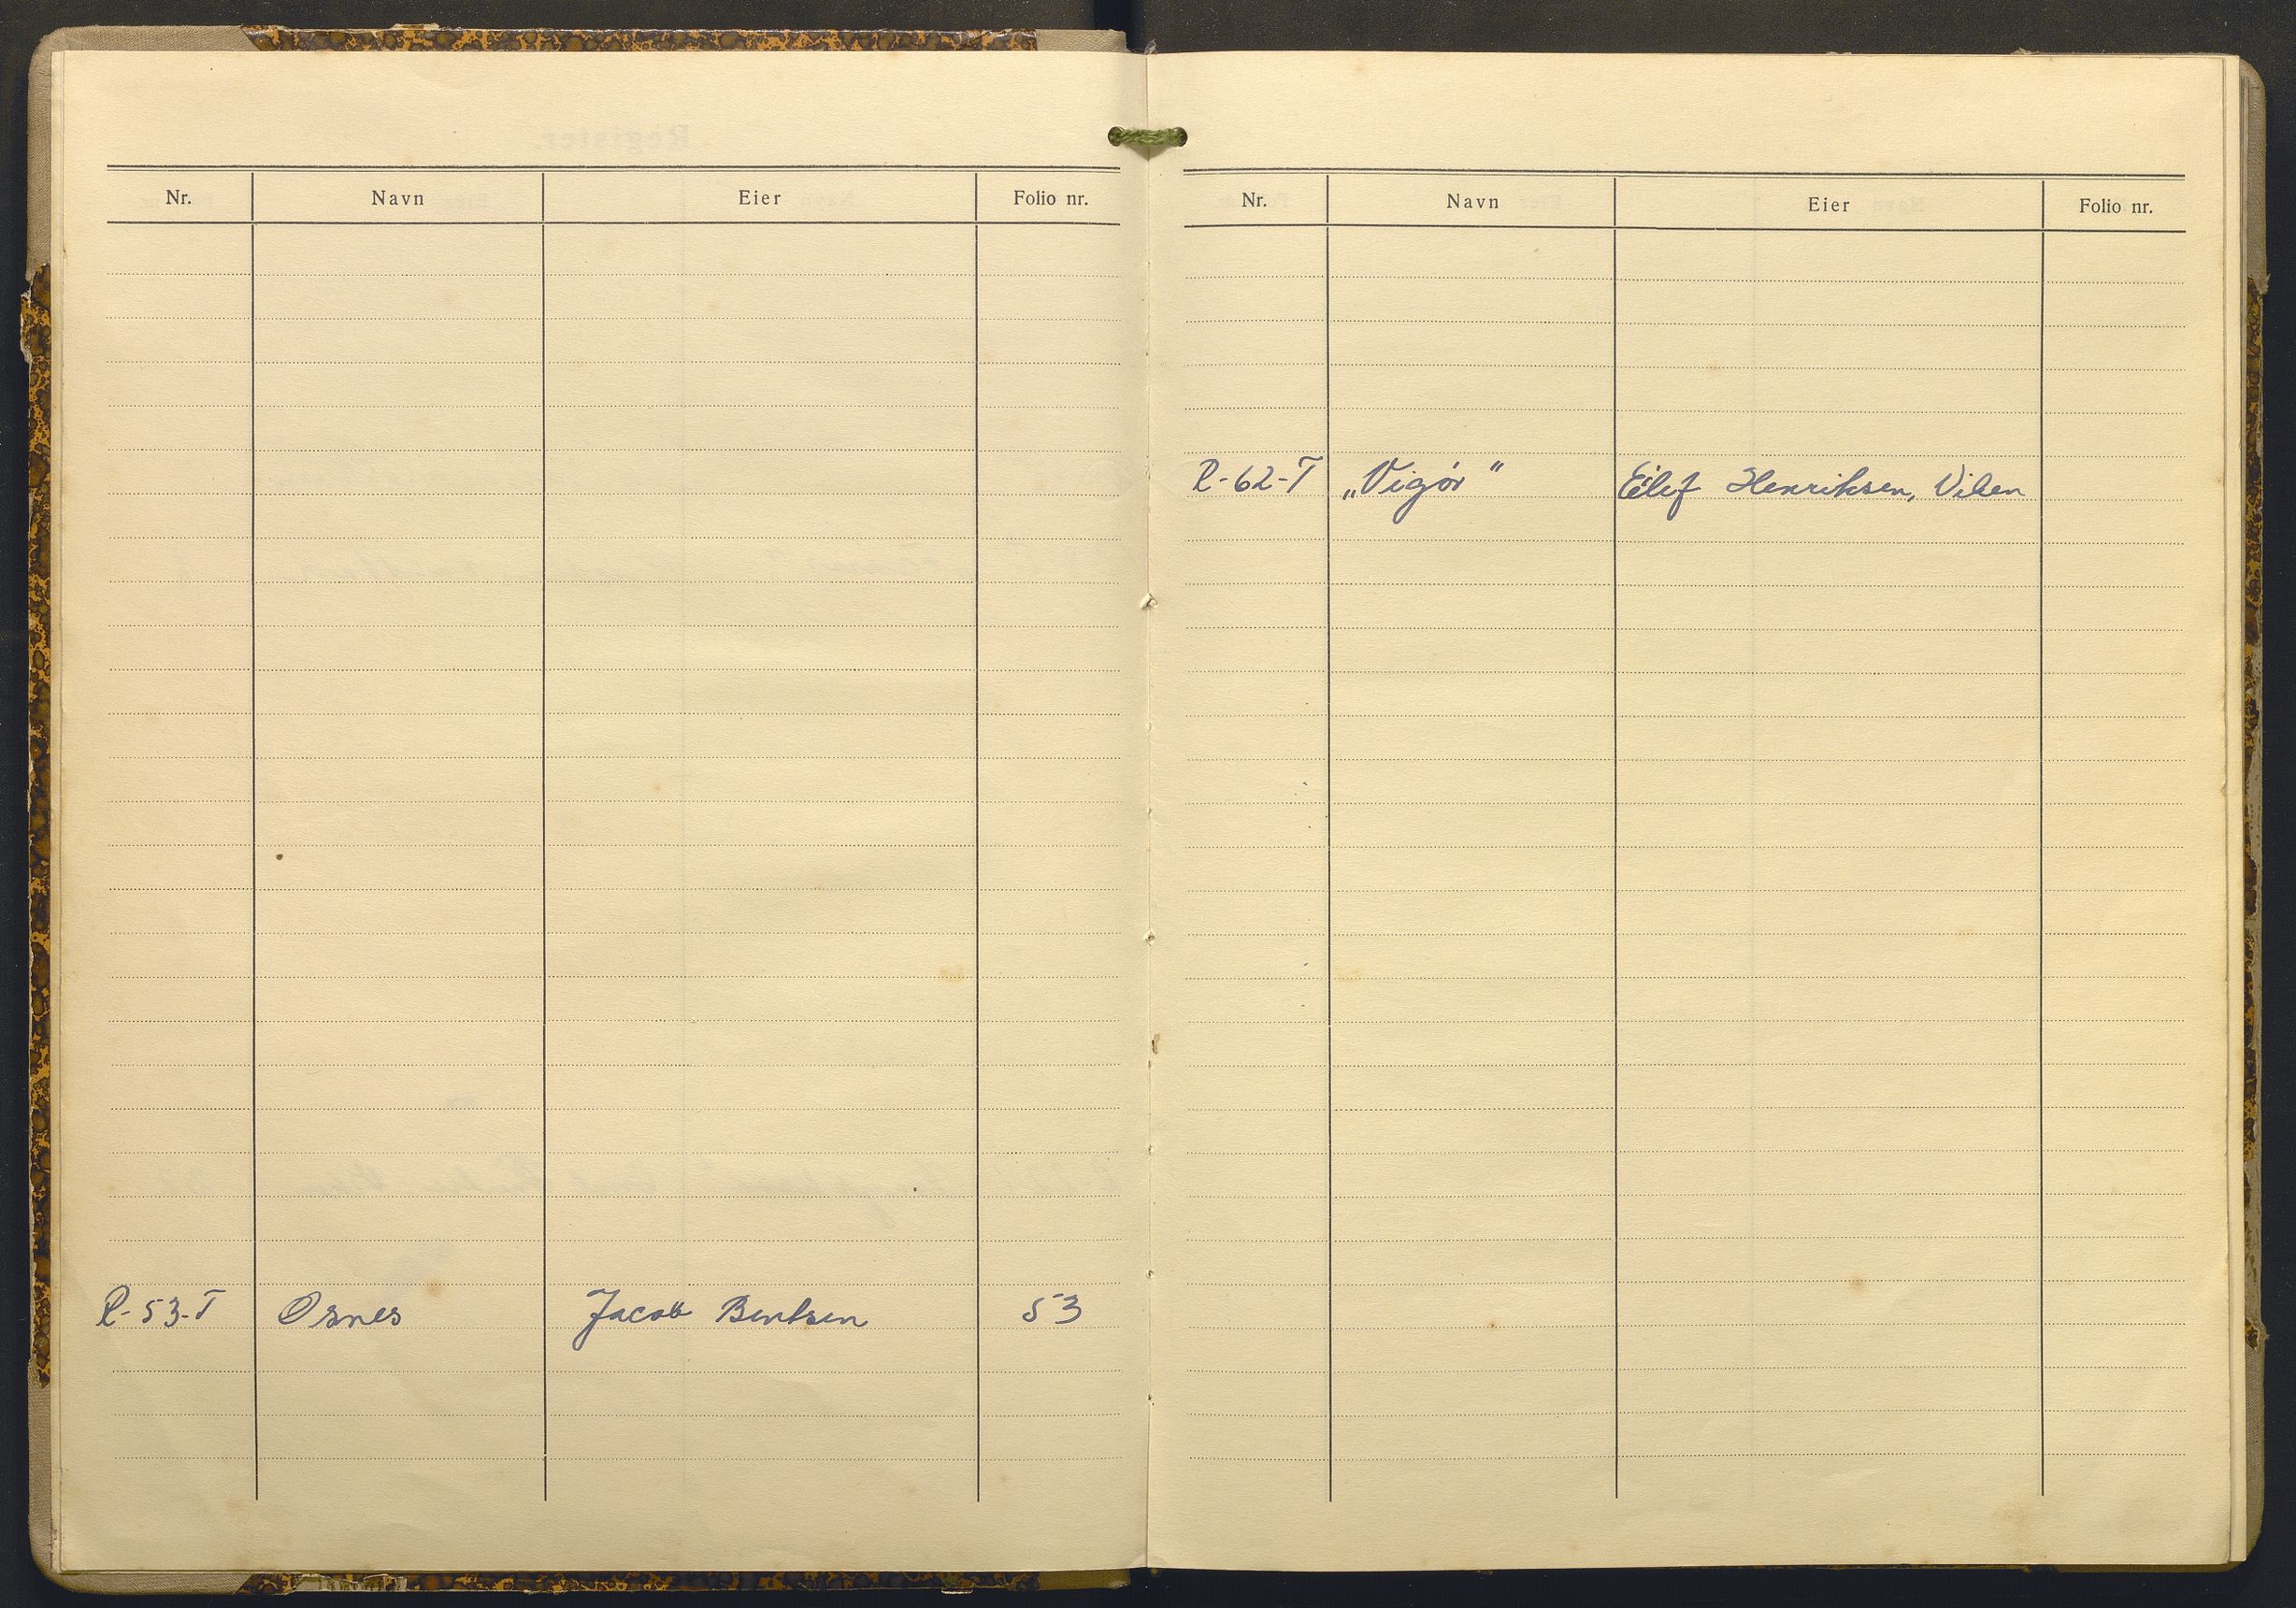 Nr. Navn Eier Folio nr.
R-53-T Osnes Jacob Bentsen 53
Nr. Navn Eier Folio nr.
R-62-T „Vigör" Eilef Henriksen, Viken